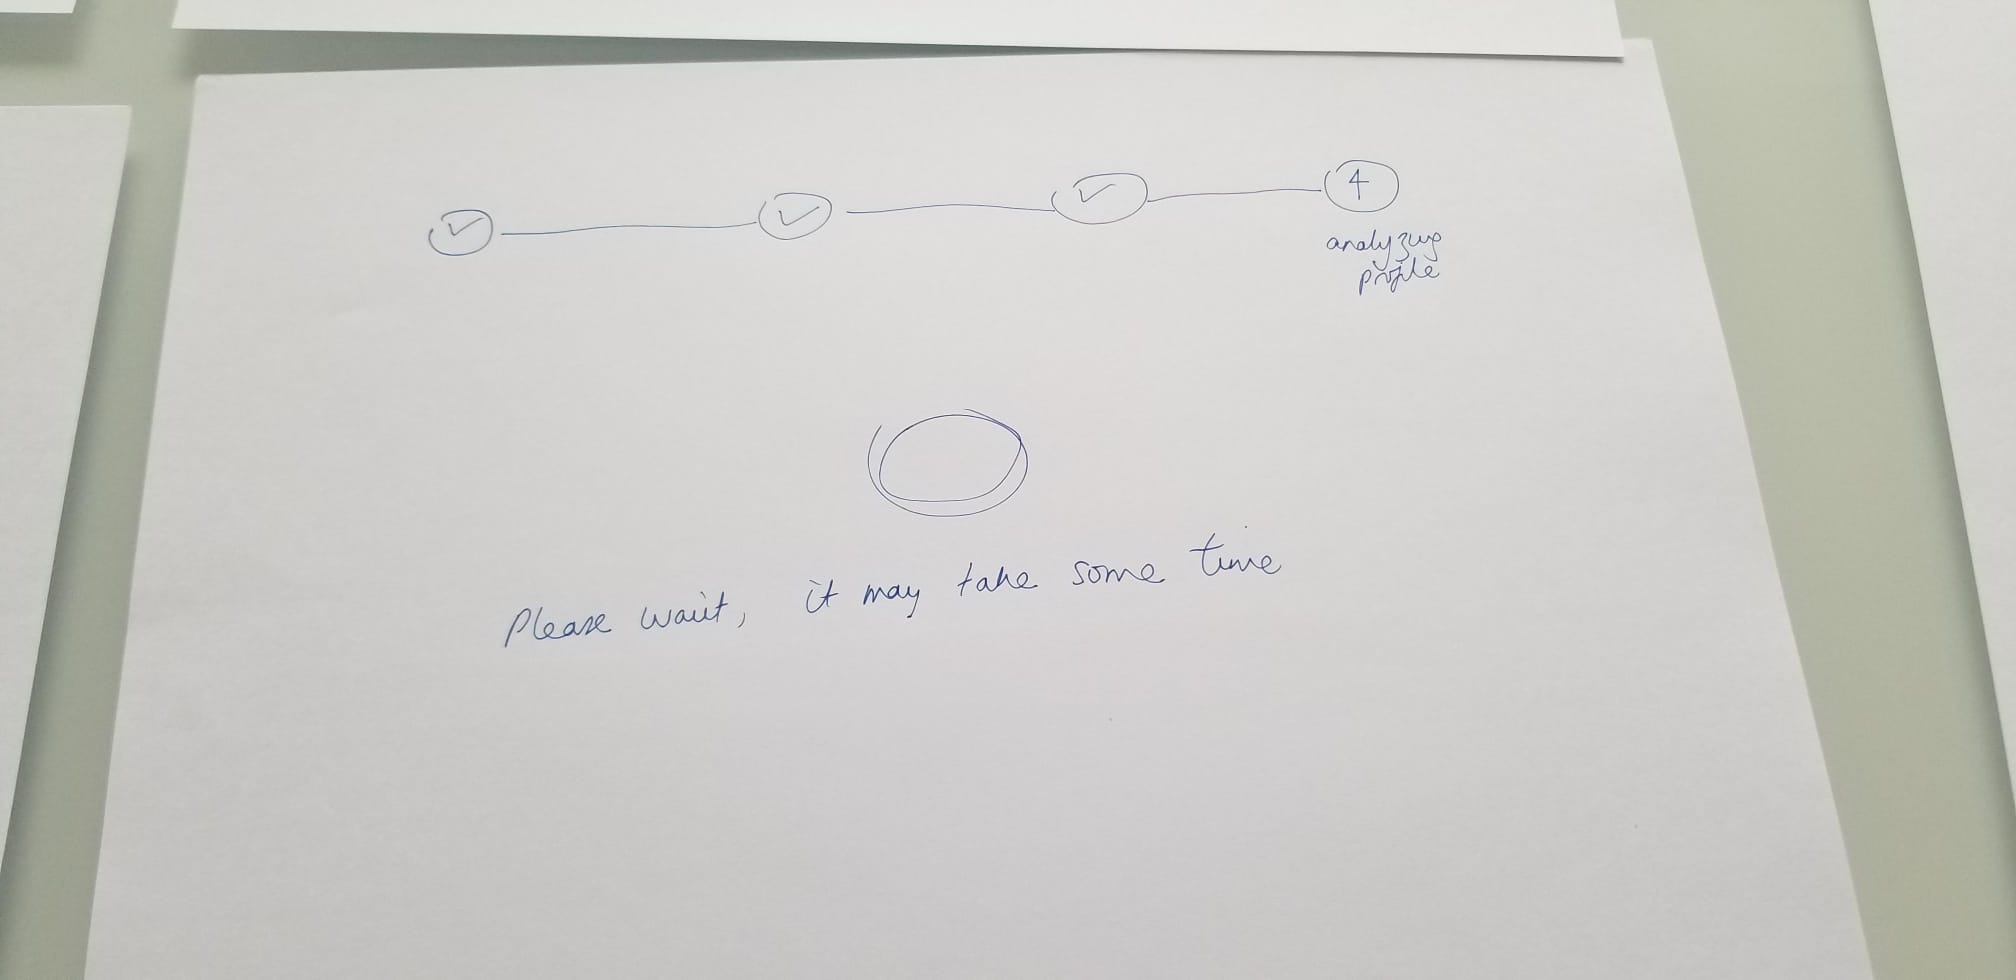 4
analyzing
profile
Please wait, it may take some time